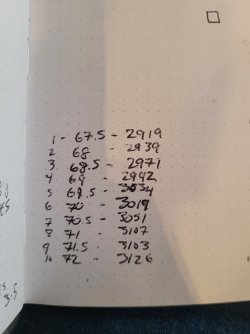 1 - 67.5 - 2919
2 68 - 2939
3 68.5 - 2971
4 69 - 2992
5 69.5 -
6 70 - 3019
7 70.5 - 3051
8 71 - 3107
9 71.5 - 3103
10 72 - 3126